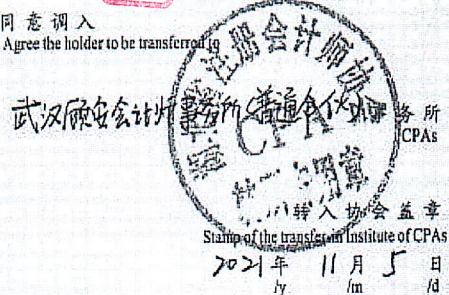 同意调入
Agree the holder to be transferred to
武汉顾安会计师事务所(普通合伙) 事务所
CPAs
注册会计师协
CPA
转入协会盖章
Stamp of the transfer-in Institute of CPAs
2021年 11月 5日
/y /m /d